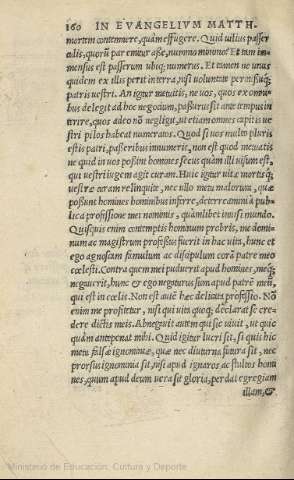 160 IN EVANGELIVM MATTH.
mortem contemnere, quàm effugere. Quid uilius passer
culis, quorũ par emitur asse, nummo minimo? Et tam im-
mensus est passerum ubiq; numerus. Et tamen ne unus
quidem ex illis perit in terra, nisi uoluntate permissuq;
patris uestri. An igitur metuitis, ne uos, quos ex omni-
bus delegit ad hoc negocium, passurus sit ante tempus in
terire, quos adeo nõ negligit, ut etiam omnes capitis ue
stri pilos habeat numeratos. Quod si uos multo pluris
estis patri, passeribus innumeris, non est quod metuatis
ne quid in uos possint homines secus quàm illi uisum est,
qui uestri iugem agit curam. Huic igitur uitæ mortisq;
uestræ curam relinquite, nec ullo metu malorum, quæ
possunt homines hominibus inferre, deterreamini à pub
lica professione mei nominis, quamlibet inuisi mundo.
Quisquis enim contemptis hominum probris, me domi-
num ac magistrum professus fuerit in hac uita, hunc et
ego agnoscam famulum ac discipulum corã patre meo
cœlesti. Contra quem mei puduerit apud homines, meq;
negauerit, hunc & ego negaturus sum apud patrẽ meũ,
qui est in cœlis. Non est autẽ hæc delicata professio. Nõ
enim me profitetur, nisi qui uita quoq; declarat se cre-
dere dictis meis. Abnegauit autem qui sic uiuit, ut quic
quàm anteponat mihi. Quid igitur lucri sit, si quis hic
metu falsæ ignominiæ, quæ nec diuturna futura sit, nec
prorsus ignominia sit, nisi apud ignaros ac stultos homi
nes, quum apud deum uera sit gloria, perdat egregiam
illam, &
Ministerio de Educación, Cultura y Deporte